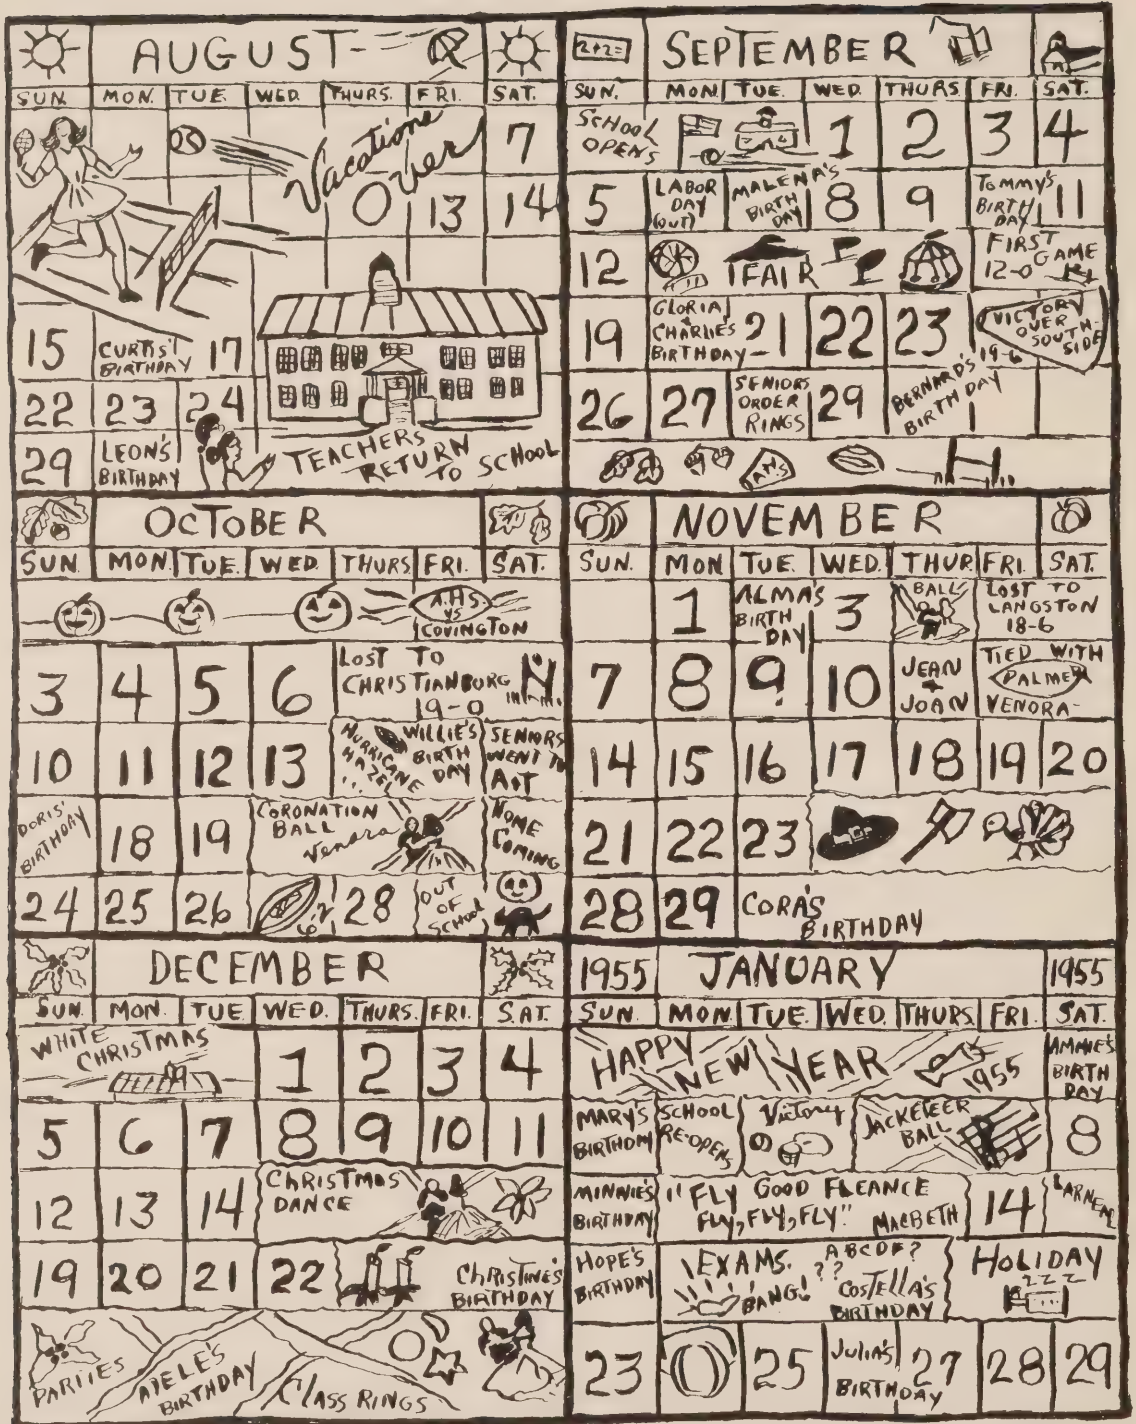 AUGUST
SUN. MON. TUE. WED. THURS. FRI. SAT.
Vacations 7
Over 13 14
15 CURTIS' 17
BIRTHDAY
22 23 24
29 LEON'S
BIRTHDAY
TEACHERS
RETURN
TO SCHOOL
2+2=
SEPTEMBER
SUN. MON. TUE. WED. THURS. FRI. SAT.
SCHOOL
OPENS
1 2 3 4
5 LABOR
DAY
(OUT)
MALENA'S
BIRTH
DAY
8 9 TOMMY'S
BIRTH
DAY
11
12 FAIR FIRST
GAME
12-0
19 GLORIA
&
CHARLIE'S
BIRTHDAY
21 22 23 VICTORY
OVER
SOUTH-
SIDE
19-6
26 27 SENIORS
ORDER
RINGS
29 BERNARD'S
BIRTHDAY
OCTOBER
SUN. MON. TUE. WED. THURS. FRI. SAT.
A.H.S.
VS
COVINGTON
3 4 5 6 LOST TO
CHRISTIANBURG
19-0
10 11 12 13 HURRICANE
HAZEL
WILLIE'S
BIRTH
DAY
SENIORS
WENT TO
A+T
DORIS'
BIRTHDAY
18 19 CORONATION
BALL
Venora
HOME
COMING
24 25 26 28 OUT
OF
SCHOOL
NOVEMBER
SUN. MON. TUE. WED. THUR. FRI. SAT.
1 ALMA'S
BIRTH
DAY
3 BALL LOST TO
LANGSTON
18-6
7 8 9 10 JEAN
+
JOAN
TIED WITH
PALMER
VENORA-
14 15 16 17 18 19 20
21 22 23
28 29 CORA'S
BIRTHDAY
DECEMBER
SUN. MON. TUE. WED. THURS. FRI. SAT.
WHITE
CHRISTMAS
1 2 3 4
5 6 7 8 9 10 11
12 13 14 CHRISTMAS
DANCE
19 20 21 22 CHRISTINE'S
BIRTHDAY
PARTIES
ADELE'S
BIRTHDAY
CLASS RINGS
1955 JANUARY 1955
SUN. MON. TUE. WED. THURS. FRI. SAT.
HAPPY
NEW YEAR
1955
BIRTH
DAY
MARY'S
BIRTHDAY
SCHOOL
RE-OPENS
Victory
JACKETEER
BALL
8
MINNIE'S
BIRTHDAY
"FLY GOOD FLEANCE
FLY, FLY, FLY!"
MACBETH
14
HOPE'S
BIRTHDAY
EXAMS.
BANG!
A B C D F?
??
COSTELLA'S
BIRTHDAY
HOLIDAY
ZZZ
23 25 JULIA'S
BIRTHDAY
27 28 29